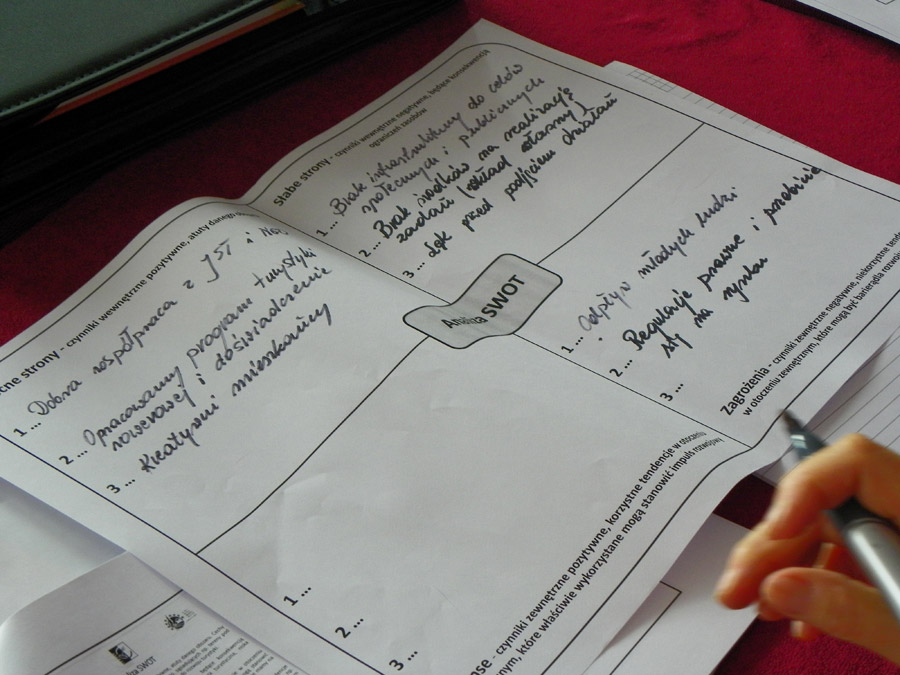 Mocne strony - czynniki wewnętrzne pozytywne, atuty danego
1... Dobra współpraca z JST i
2... Opracowany program turystyki
rowerowej i doświadczenie
3... Kreatywni mieszkańcy
Słabe strony - czynniki wewnętrzne negatywne, będące konsekwencją
ograniczeń zasobów
1... Brak infrastruktury do celów
społecznych i publicznych
2... Brak środków na realizację
zadań (wkład własny)
3... Lęk przed podjęciem działań
Analiza SWOT
1... odpływ młodych ludzi
2... Regulacje prawne i
się na rynku
3...
Zagrożenia - czynniki zewnętrzne negatywne, niekorzystne
w otoczeniu zewnętrznym, które mogą być barierą dla
1...
2...
3...
nse - czynniki zewnętrzne pozytywne, korzystne tendencje w otoczeniu
nym, które właściwie wykorzystane mogą stanowić impuls rozwojowy
SWOT